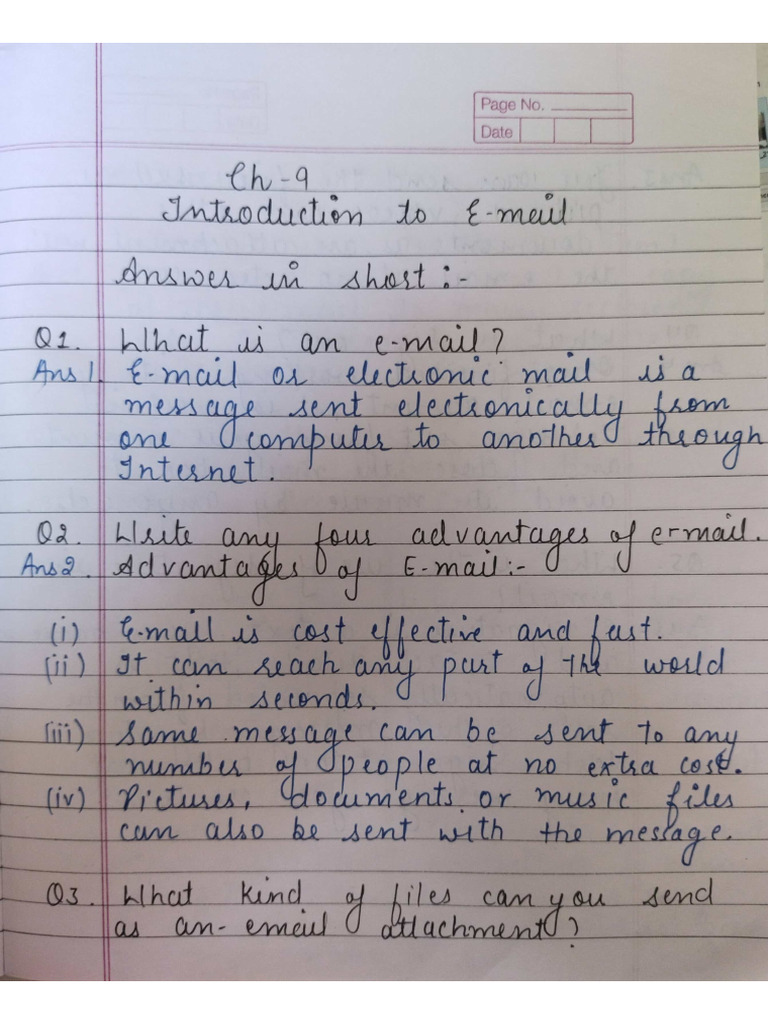 Page No.
Date
Ch-9
Introduction to E-mail
Answer in short:-
Q1. What is an e-mail?
Ans 1. E-mail or electronic mail is a
message sent electronically from
one computer to another through
Internet.
Q2. Write any four advantages of e-mail.
Ans2. Advantages of E-mail:-
(i) E-mail is cost effective and fast.
(ii) It can reach any part of the world
within seconds.
(iii) Same message can be sent to any
number of people at no extra cost.
(iv) Pictures, documents or music files
can also be sent with the message.
Q3. What kind of files can you send
as an- email attachment?